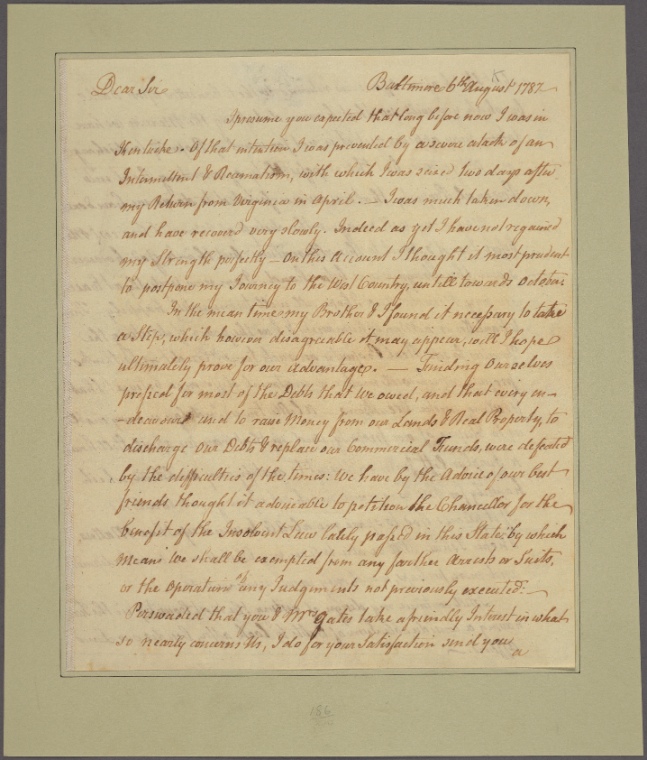 Dear Sir Baltimore 6th August 1787
I presume you expected that long before now I was in
Kentucke. Of that intention I was prevented by a severe attack of an
Intermittent & Reumatism, with which I was seized two days after
my Return from Virginia in April. — I was much taken down,
and have recoverd very slowly. Indeed as yet I have not regained
my Strength perfectly — On this Account I thought it most prudent
to postpone my Journey to the West Country, untill towards October
In the mean time my Brother & I found it necessary to take
a Step, which however disagreable it may appear, will I hope
ultimately prove for our advantage. — Finding Ourselves
pressed for most of the Debts that we owed, and that every en-
-deavour used to raise Money from our Lands & Real Property, to
discharge our Debts & replace our Commercial Funds, were defeated
by the difficulties of the times: We have by the Advice of our best
friends thought it adviseable to petition the Chancellor for the
benefit of the Insolvent Law lately passed in this State; by which
Means we shall be exempted from any farther Arrests or Suits,
or the Operation of any Judgements not previously executed. —
Perswaded that you & Mrs Gates take a friendly Interest in what
so nearly concerns Us, I do for your Satisfaction send you
a
186